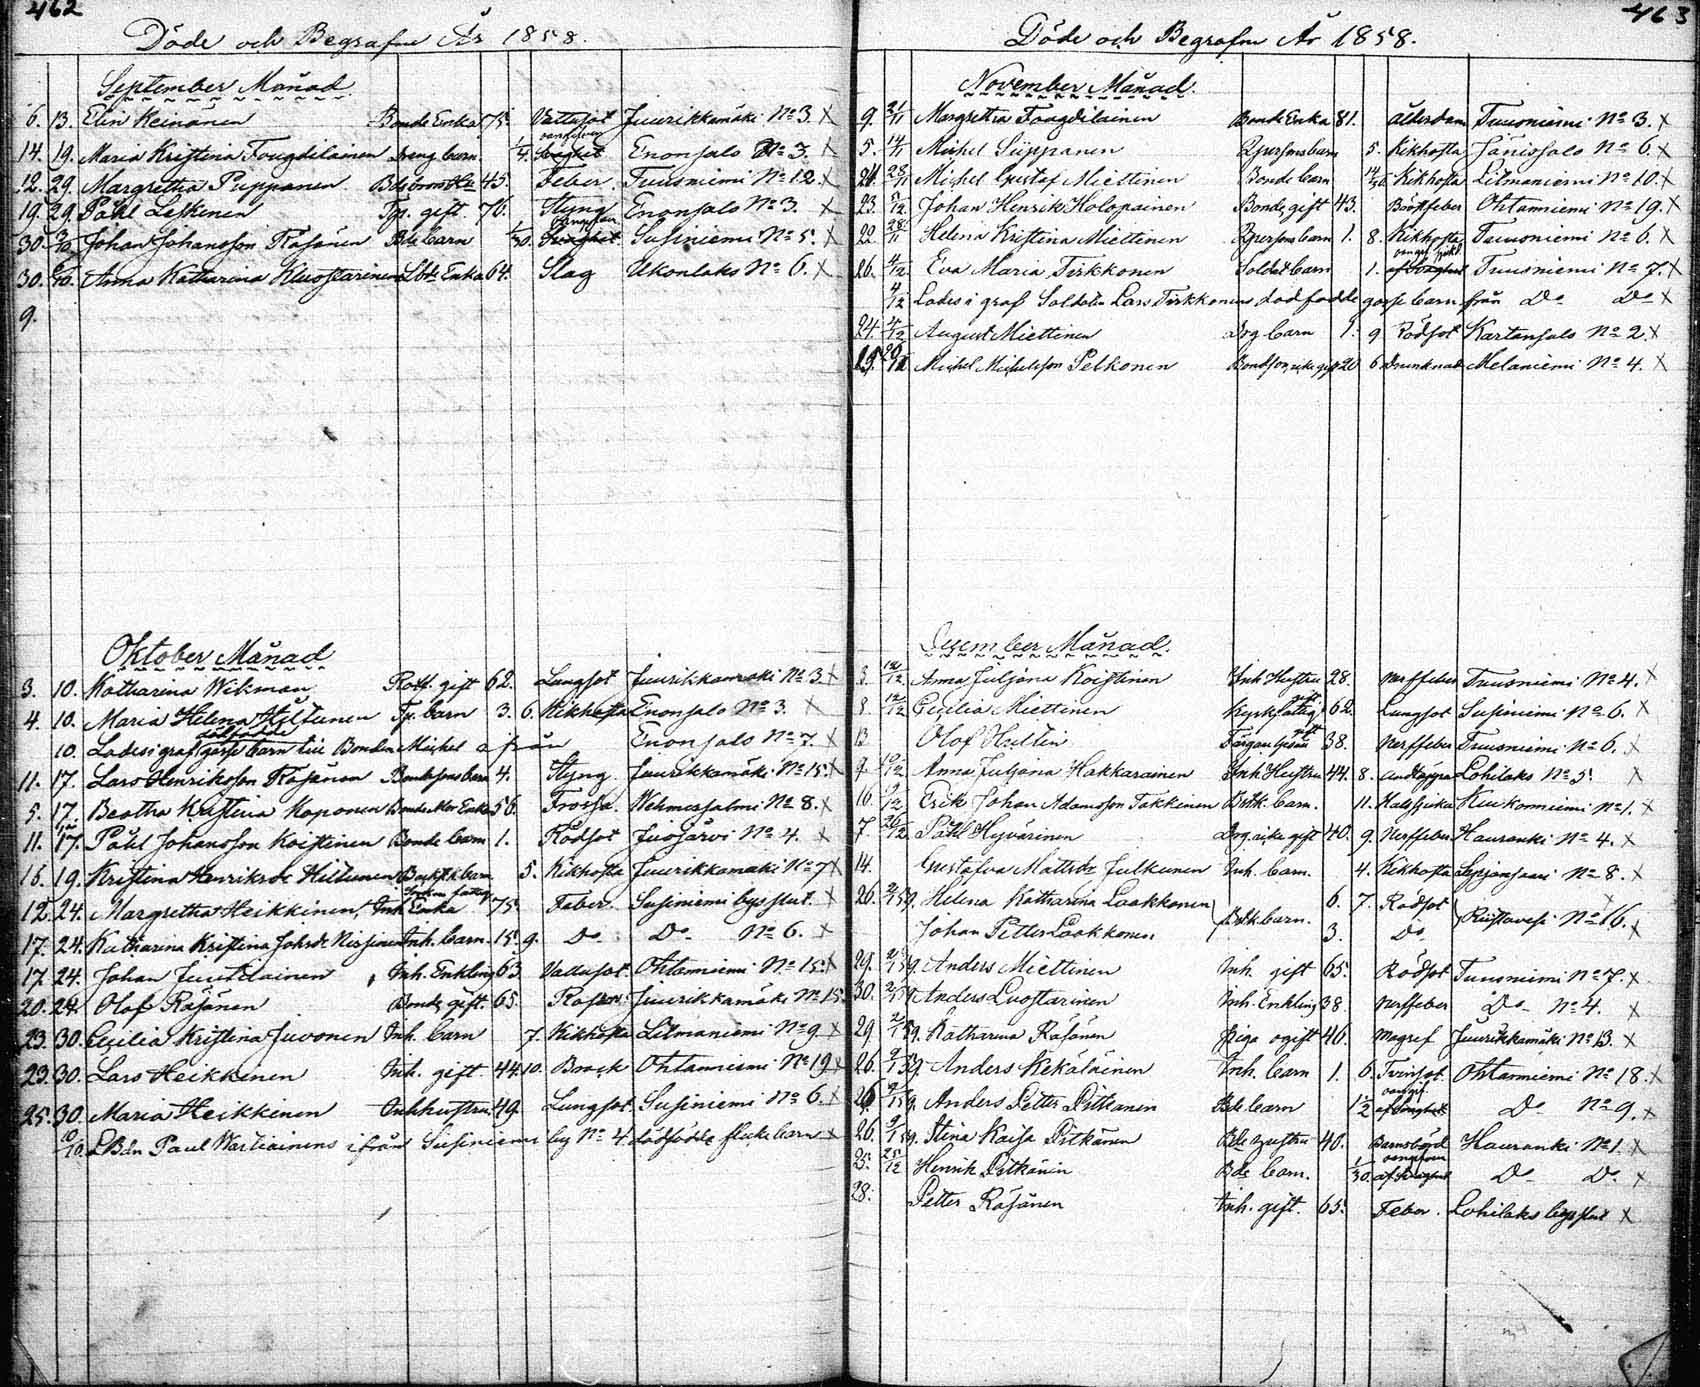 462
Döde och Begrafne År 1858.
September Månad
6. 13. Elin Keinänen Bonde Enka 75. Vattusot Juurikkamäki No 3. X
14. 19. Maria Kristina Tougdilainen Dreng barn 1/4. oangifven Enonsalo No 3. X
12. 29. Margretha Puppanen 45. Feber. Tuusniemi No 12. X
19. 29. Påhl Laskinen Tjp. gift. 76. Styng Enonsalo No 3. X
30. 3/10. Johan Johansson Räsänen Bde barn 1/30. oangifven Susiniemi No 5. X
30. Anna Katharina Kluostarinen Lbde Enka 64. Slag Ukonlaks No 6. X
9.
Oktober Månad
3. 10. Katharina Wikman gift 62. Lungsot Juurikkamäki No 3 X
4. 10. Maria Helena Hiltunen Tjp. barn 3. 6. Kikhosta Enonsalo No 3. X
dödfödde
10. Lades i graf gosse barn till Bonden Michel ifrån Enonsalo No 7. X
11. 17. Lars Henriksson Räsänen Bondesons barn 4. Styng. Juurikkamäki No 15. X
5. 17. Beatha Kristina Koponen Enka 56. Frossa. Wehmersalmi No 8. X
11. 17. Påhl Johansson Koistinen Bonde barn 1. Rödsot Juojärvi No 4. X
16. 19. Kristina Henriksdr Hiltunen barn 5. Kikhosta Juurikkamäki No 7 X
12. 24. Margretha Heikkinen, Inh. Enka 75. Feber. Susiniemi bys slut. X
17. 24. Katharina Kristina Johsdr Nissinen Inh. barn 15. 9. Do Do No 6. X
17. 24. Johan Juutilainen Inh. Enkling 63 Vattusot. Ohtamiemi No 15. X
20. 24. Olof Räsänen Bonde, gift. 65. Juurikkamäki No 15.
23. 30. Cecilia Kristina Juvonen Inh. barn 7. Kikhosta Litmaniemi No 9. X
23. 30. Lars Heikkinen Inh. gift. 44. 10. Brock Ohtamiemi No 19 X
25. 30. Maria Heikkinen Inh hustru. 49. Lungsot. Susiniemi No 6. X
10/10. LBdn Paul Wartiainens ifrån Susiniemi by No 4. dödfödde flicke barn X
463
Döde och Begrafne År 1858.
November Månad.
9. 21/11 Margretha Tougdilainen Bonde Enka 81. ålderdom Tuusniemi No 3. X
5. 14/11 Michel Siippanen Bpersons barn 5. Kikhosta Jäniosalo No 6. X
21. 28/11 Michel Gustaf Miettinen Bonde barn Kikhosta Litmaniemi No 10. X
23. Johan Henrik Holopainen Bonde, gift 43. Bröstfeber Ohtamiemi No 19. X
22. 28/11 Helena Kristina Miettinen Bpersons barn 1. 8. Kikhosta Tuusniemi No 6. X
26. 4/12 Eva Maria Tirkkonen Soldat barn 1. Tuusniemi No 7. X
4/12 Lades i graf Soldaten Lars Tirkkonens dödfödde gosse barn från Do Do X
24. 4/12 August Miettinen Drg barn 1. 9 Rödsot Kartansalo No 2. X
Michel Michelsson Pelkonen 20 6 Drunknad Melaniemi No 4. X
December Månad.
3. 12/12 Anna Juljana Koistinen Inh Hustru 28. Nerffeber Tuusniemi No 4. X
8. 12/12 Cecilia Miettinen Kyrkfattig 62. Lungsot Susiniemi No 6. X
13 Olof Hultin 38. Nerffeber Tuusniemi No 6. X
9. Anna Juljana Hakkarainen Inh. Hustru 44. 8. Lohilaks No 5. X
16. Erik Johan Adamsson Takkinen barn. 11. Halssjuka Kuikonniemi No 1. X
7. 26/12 Påhl Hyvärinen gift 40. 9. Nerffeber Hauranki No 4. X
14. Gustafva Mattsdr Julkunen Inh. barn. 4. Kikhosta No 8. X
26. Helena Katharina Laakkonen 6. 7. Rödsot X
Johan Petter Laakkonen barn. 3. Do Ruistavesi No 16. X
29. Anders Miettinen Inh. gift 65. Rödsot Tuusniemi No 7. X
30. Anders Luostarinen Inh. Enkling 38 Nerffeber Do No 4. X
29 Katharina Räsänen Piga ogift 46. magref Juurikkamäki No 13. X
26. Anders Kekäläinen Inh. barn 1. 6. Tvinsot. Ohtamiemi No 18. X
26 Anders Petter Pitkänen Bde barn 1/2 Do No 9. X
26. Stina Kaisa Pitkänen Bde hustru 40. Barnsbörd Hauranki No 1. X
25. 25/12 Henrik Pitkänen Bde barn. 1/30. oangifven Do Do. X
28. Petter Räsänen Inh. gift. 65. Feber. Lohilaks bys slut X